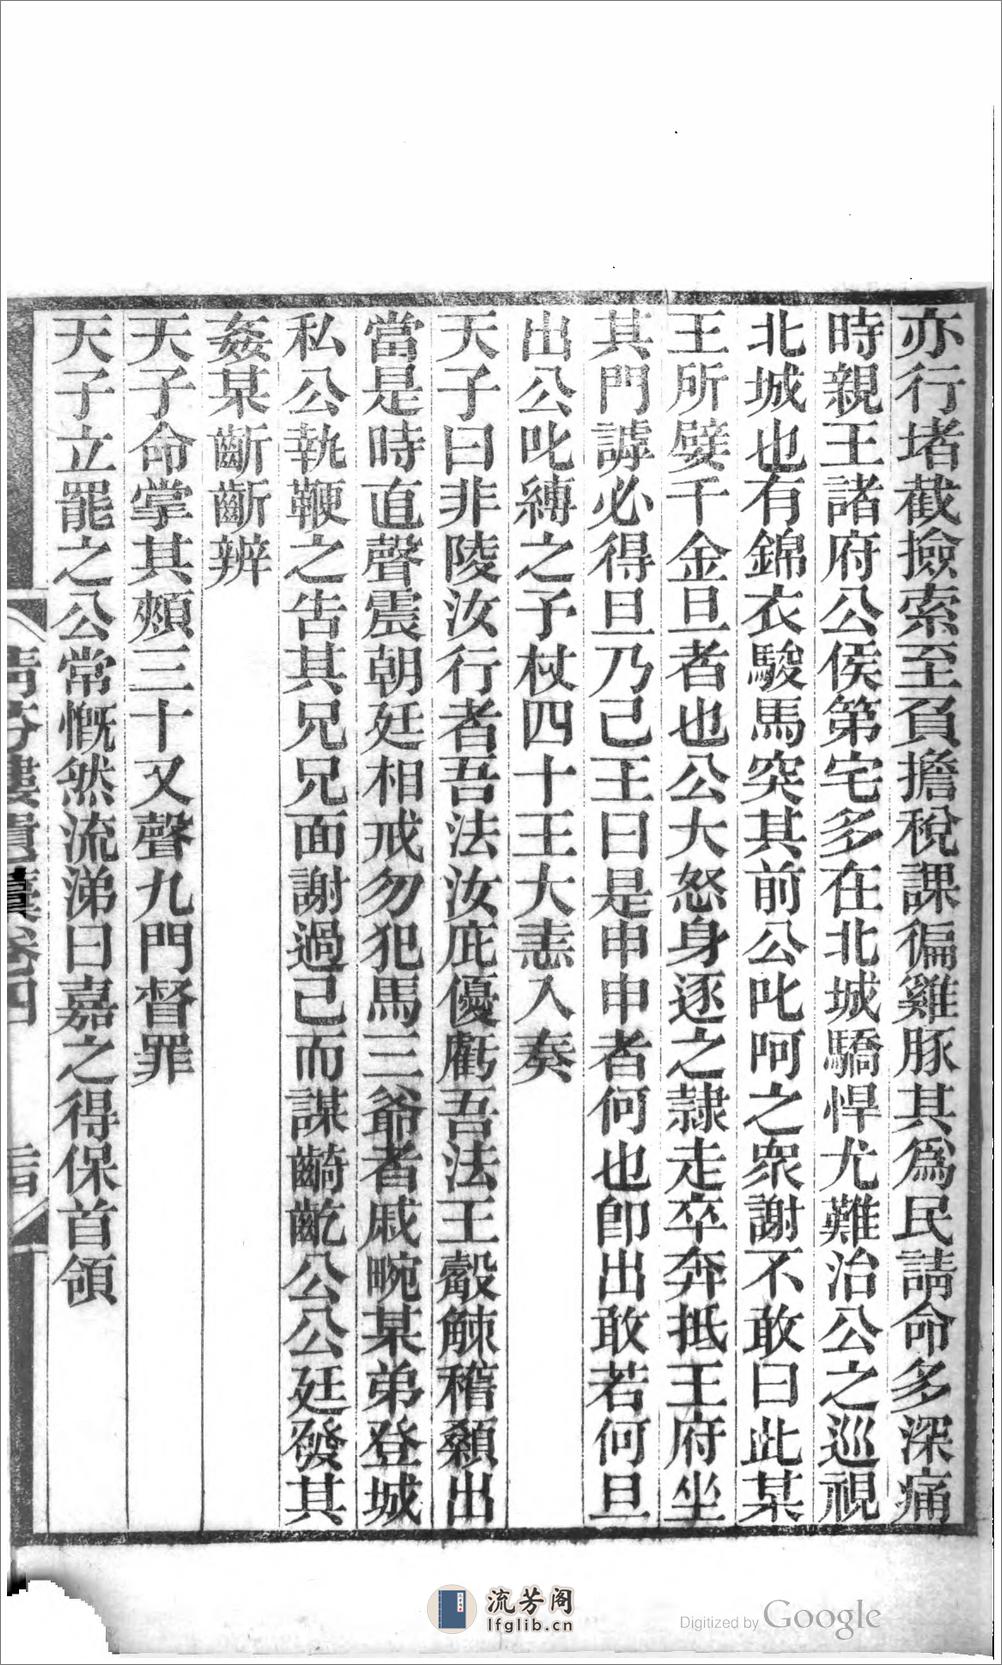 亦行堵截撿索至負擔稅課徧雞豚其爲民請命多深痛
時親王諸府公侯第宅多在北城驕悍尤難治公之巡視
北城也有錦衣駿馬突其前公叱呵之衆謝不敢曰此某
王所嬖千金旦者也公大怒身逐之隷走卒奔抵王府坐
其門謼必得旦乃己王曰是申申者何也卽出敢若何旦
出公叱縛之予杖四十王大恚入奏
天子曰非陵汝行者吾法汝庇優虧吾法王觳觫稽顙出
當是時直聲震朝廷相戒勿犯馬三爺者戚畹某弟登城
私公執鞭之告其兄兄面謝過己而謀齮齕公公廷發其
姦某齗齗辨
天子命掌其頰三十又聲九門督罪
天子立罷之公常慨然流涕曰嘉之得保首領
卷四
流芳阁
lfglib.cn
Digitized by Google